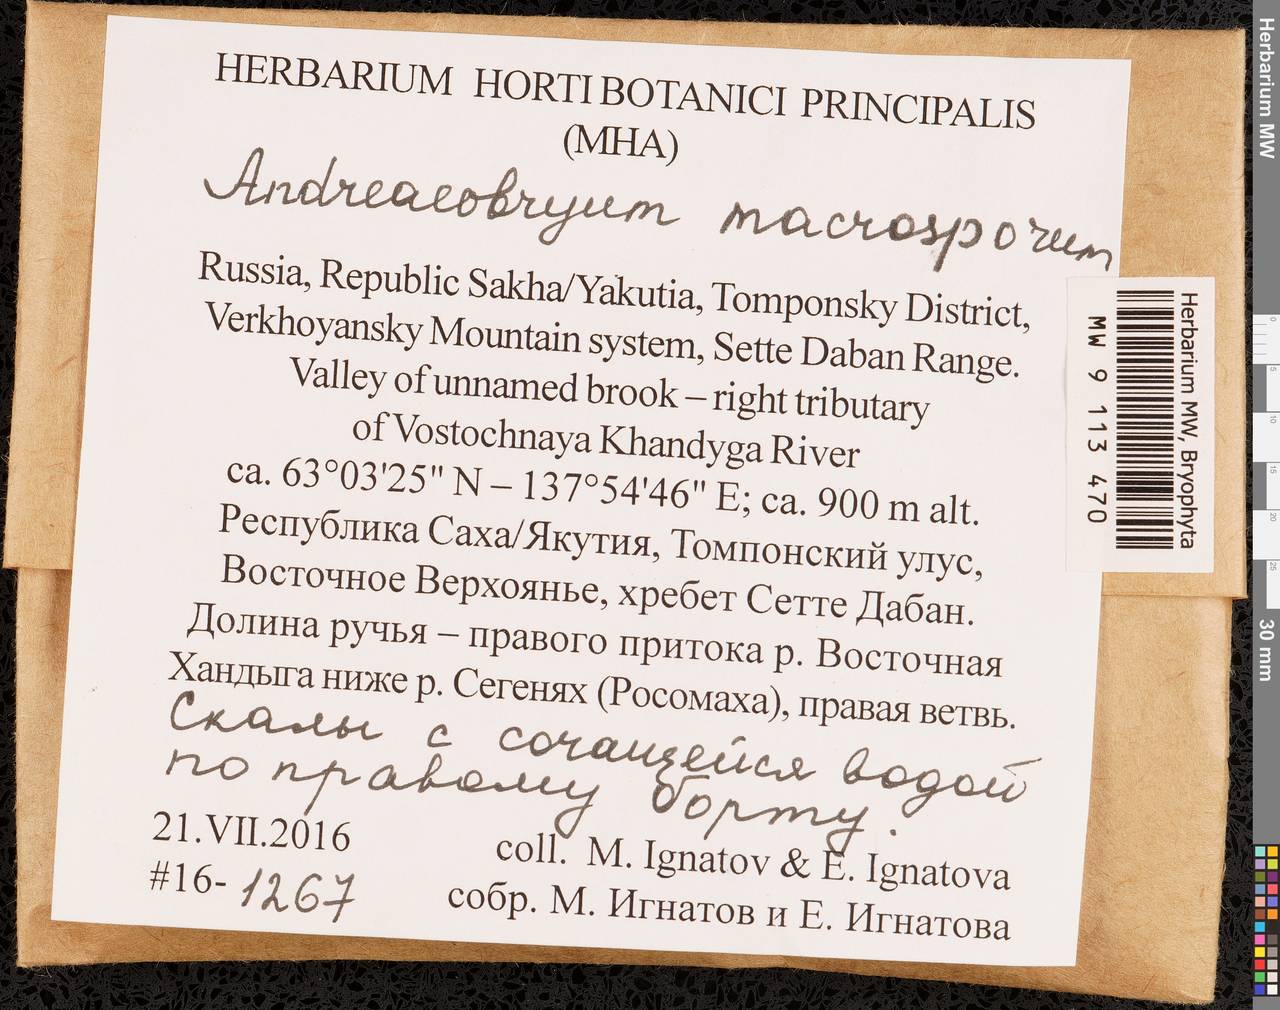 HERBARIUM HORTI BOTANICI PRINCIPALIS
(MHA)
Andreaeobryum macrosporum
Russia, Republic Sakha/Yakutia, Tomponsky District,
Verkhoyansky Mountain system, Sette Daban Range.
Valley of unnamed brook – right tributary
of Vostochnaya Khandyga River
ca. 63°03'25" N – 137°54'46" E; ca. 900 m alt.
Республика Саха/Якутия, Томпонский улус,
Восточное Верхоянье, хребет Сетте Дабан.
Долина ручья – правого притока р. Восточная
Хандыга ниже р. Сегенях (Росомаха), правая ветвь.
Скалы с сочащейся водой
по правому борту.
21.VII.2016
coll. M. Ignatov & E. Ignatova
#16-1267
собр. М. Игнатов и Е. Игнатова
MW 9 113 470
Herbarium MW, Bryophyta
Herbarium MW
0
5
10
15
20
25
30 mm